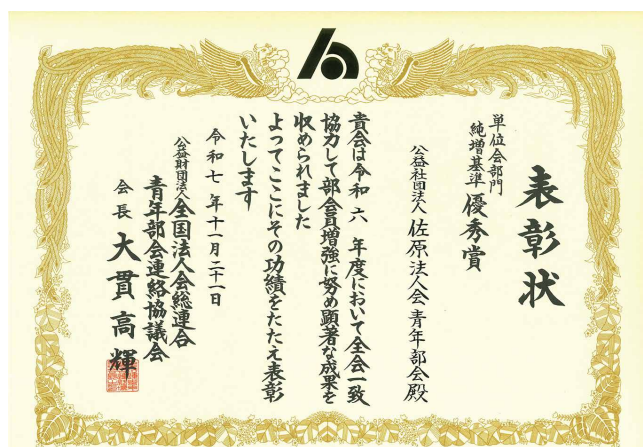 表彰状
単位会部門
純増基準 優秀賞
公益社団法人 佐原法人会 青年部会 殿
貴会は令和 六 年度において全会一致
協力して部会員増強に努め顕著な成果を
収められました
よってここにその功績をたたえ表彰
いたします
令和 七 年十一月二十一日
公益財団法人 全国法人会総連合
青年部会連絡協議会
会長 大貫高輝